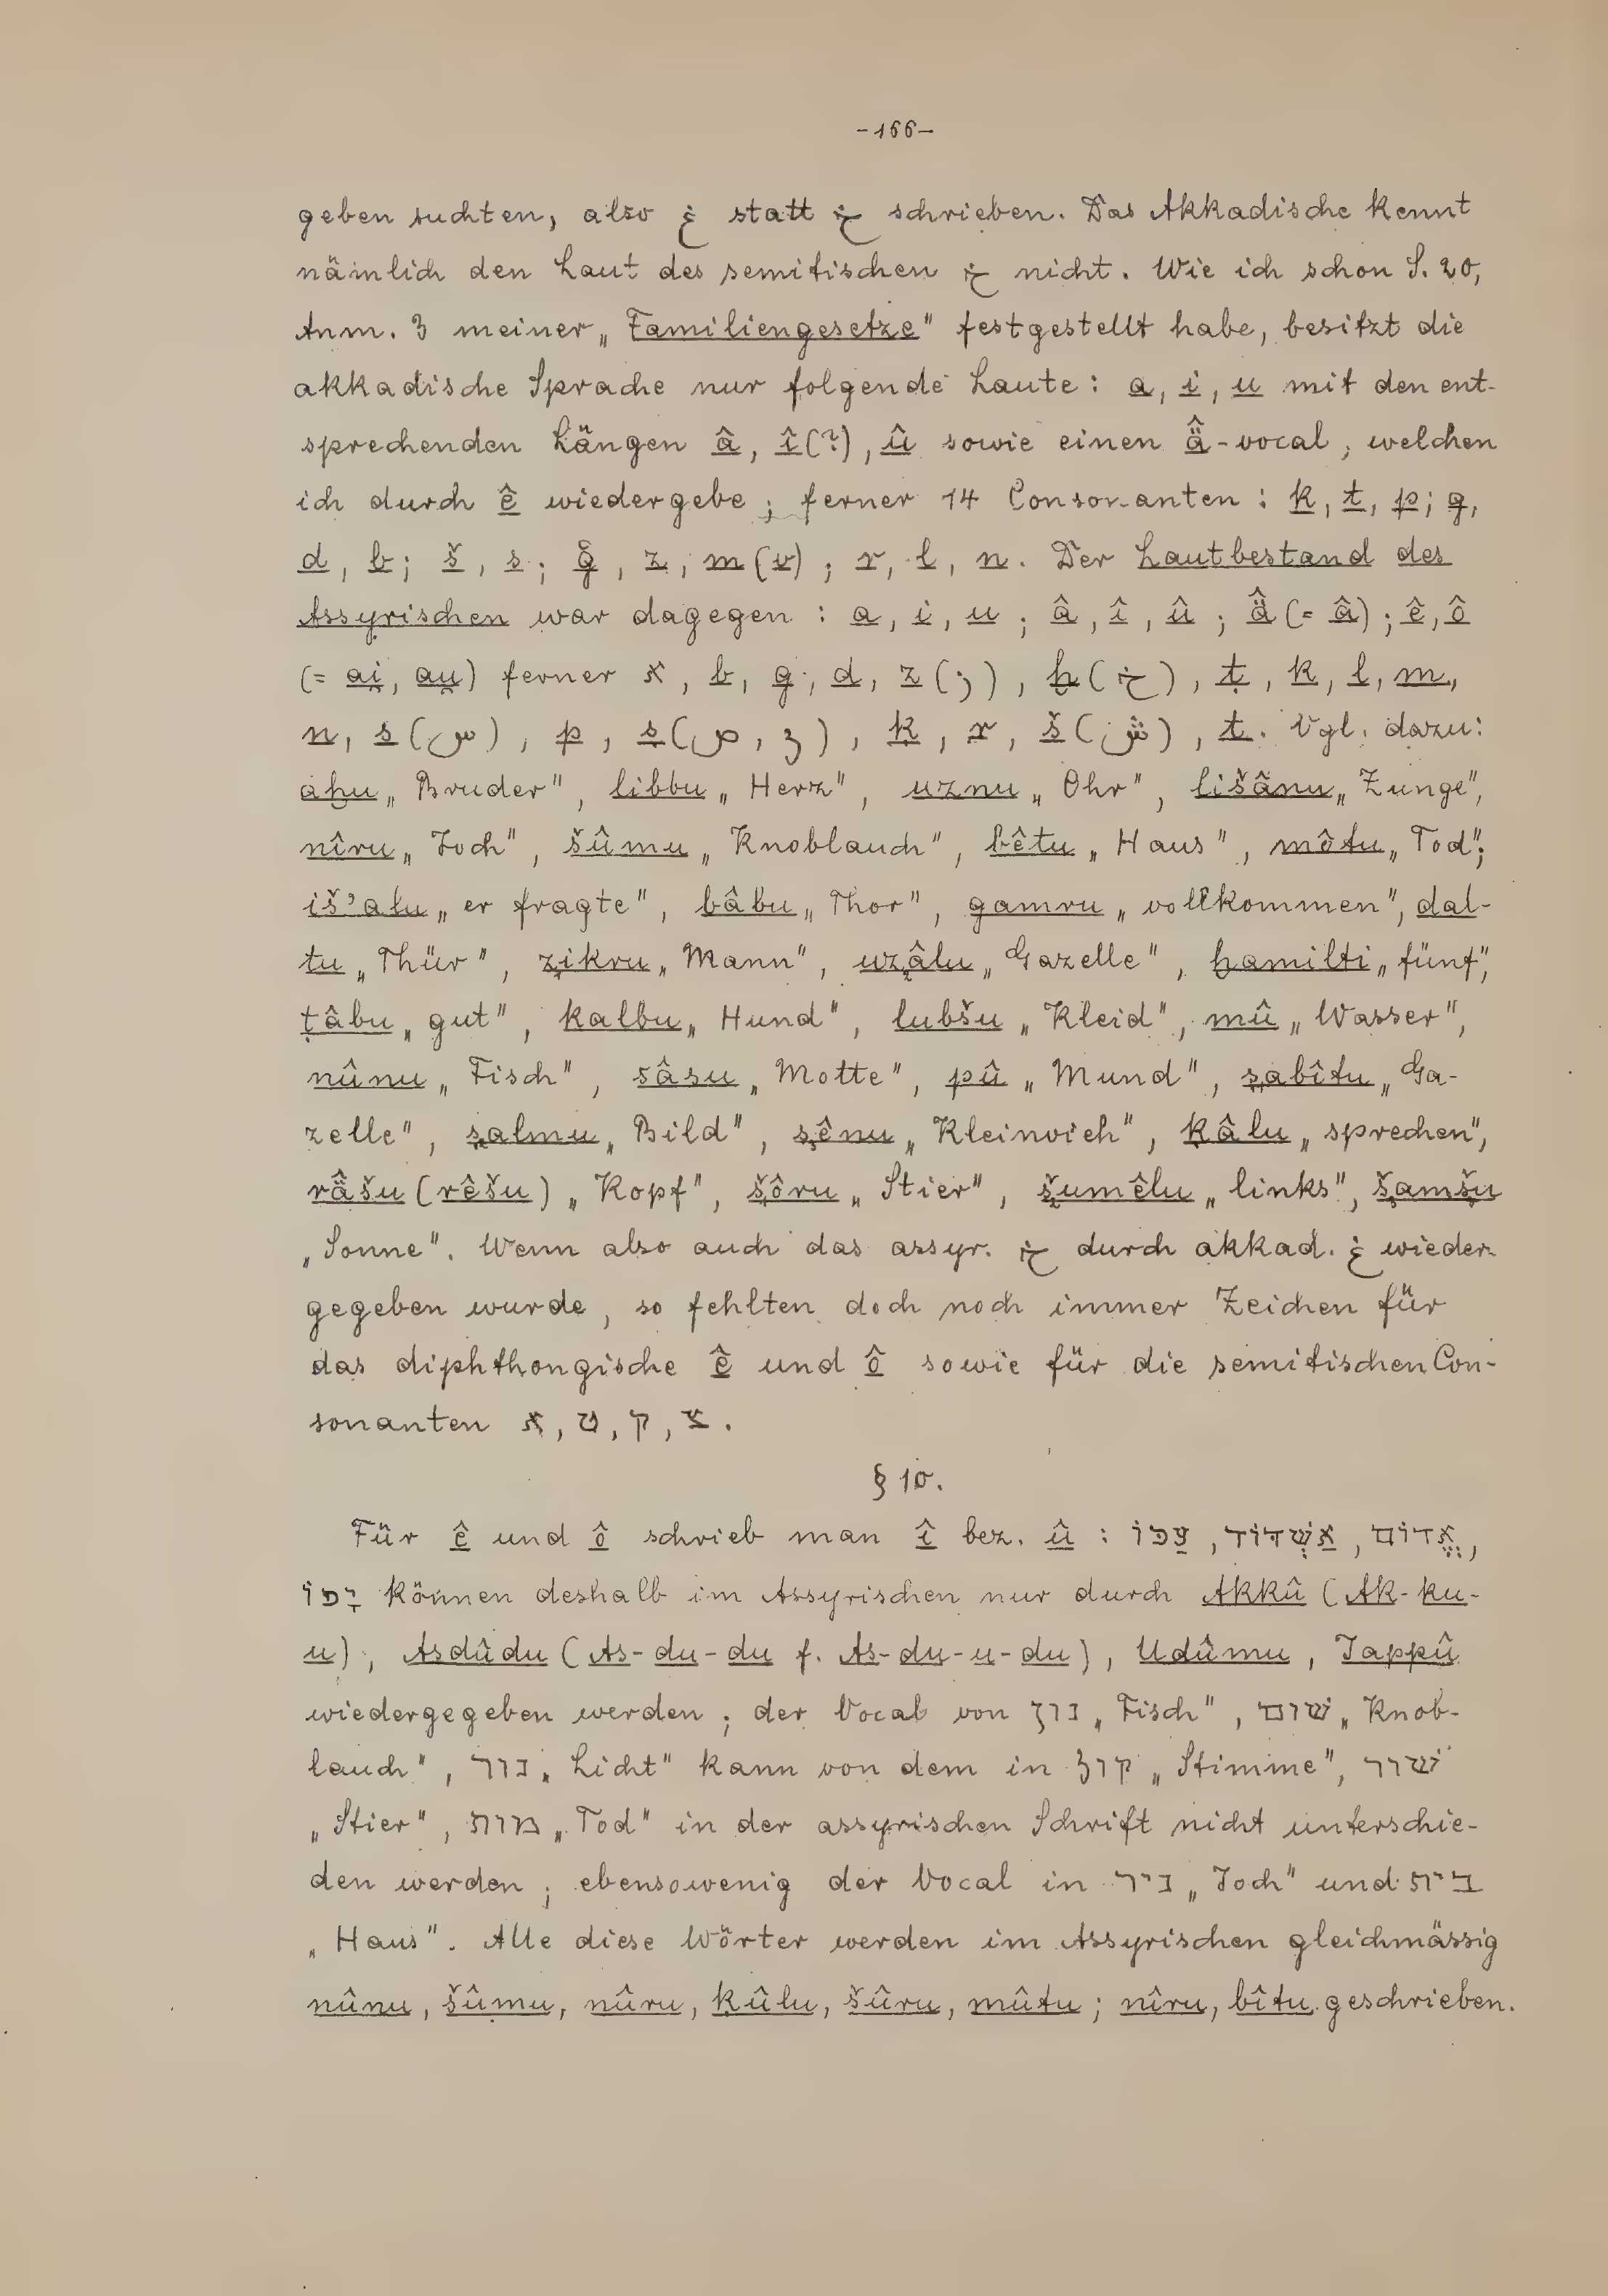 -166-
geben suchten, also غ statt خ schrieben. Das Akkadische kennt
nämlich den Laut des semitischen خ nicht. Wie ich schon S. 20,
Anm. 3 meiner „Familiengesetze" festgestellt habe, besitzt die
akkadische Sprache nur folgende Laute: a, i, u mit den ent-
sprechenden Längen â, î(?), û sowie einen ä̂-vocal, welchen
ich durch ê wiedergebe; ferner 14 Consonanten: k, t, p; g,
d, b; š, s; g̊, z; m(v); r, l, n. Der Lautbestand des
Assyrischen war dagegen: a, i, u; â, î, û; ä̂(= â); ê, ô
(= ai̯, au̯) ferner א, b, g, d, z(ز), ḫ(خ), ṭ, k, l, m,
n, s(س), p, ṣ(ص, ʒ), ḳ, r, š(ش), t. Vgl. dazu:
aḫu „Bruder", libbu „Herz", uznu „Ohr", lišânu „Zunge",
nîru „Joch", šûmu „Knoblauch", bêtu „Haus", môtu „Tod";
iš'alu „er fragte", bâbu „Thor", gamru „vollkommen", dal-
tu „Thür", z̤ikru „Mann", uz̤âlu „Gazelle", ḫamilti „fünf",
ṭâbu „gut", kalbu „Hund", lubšu „Kleid", mû „Wasser",
nûnu „Fisch", sâsu „Motte", pû „Mund", ṣabîtu „Ga-
zelle", ṣalmu „Bild", ṣênu „Kleinvieh", ḳâlu „sprechen",
rä̂šu (rêšu) „Kopf", š̤ôru „Stier", š̤umêlu „links", š̤amš̤u
„Sonne". Wenn also auch das assyr. خ durch akkad. غ wieder-
gegeben wurde, so fehlten doch noch immer Zeichen für
das diphthongische ê und ô sowie für die semitischen Con-
sonanten א, ט, ק, צ.
§ 10.
Für ê und ô schrieb man î bez. û: עַכּוֹ, אַשְׁדּוֹד, אֱדוֹם,
יָפוֹ können deshalb im Assyrischen nur durch Akkû (Ak-ku-
u), Asdûdu (As-du-du f. As-du-u-du), Udûmu, Jappû
wiedergegeben werden; der Vocal von נון „Fisch", שׁום „Knob-
lauch", נור „Licht" kann von dem in קול „Stimme", שׁור
„Stier", מות „Tod" in der assyrischen Schrift nicht unterschie-
den werden; ebensowenig der Vocal in ניר „Joch" und בית
„Haus". Alle diese Wörter werden im Assyrischen gleichmässig
nûnu, šûmu, nûru, ḳûlu, šûru, mûtu; nîru, bîtu geschrieben.